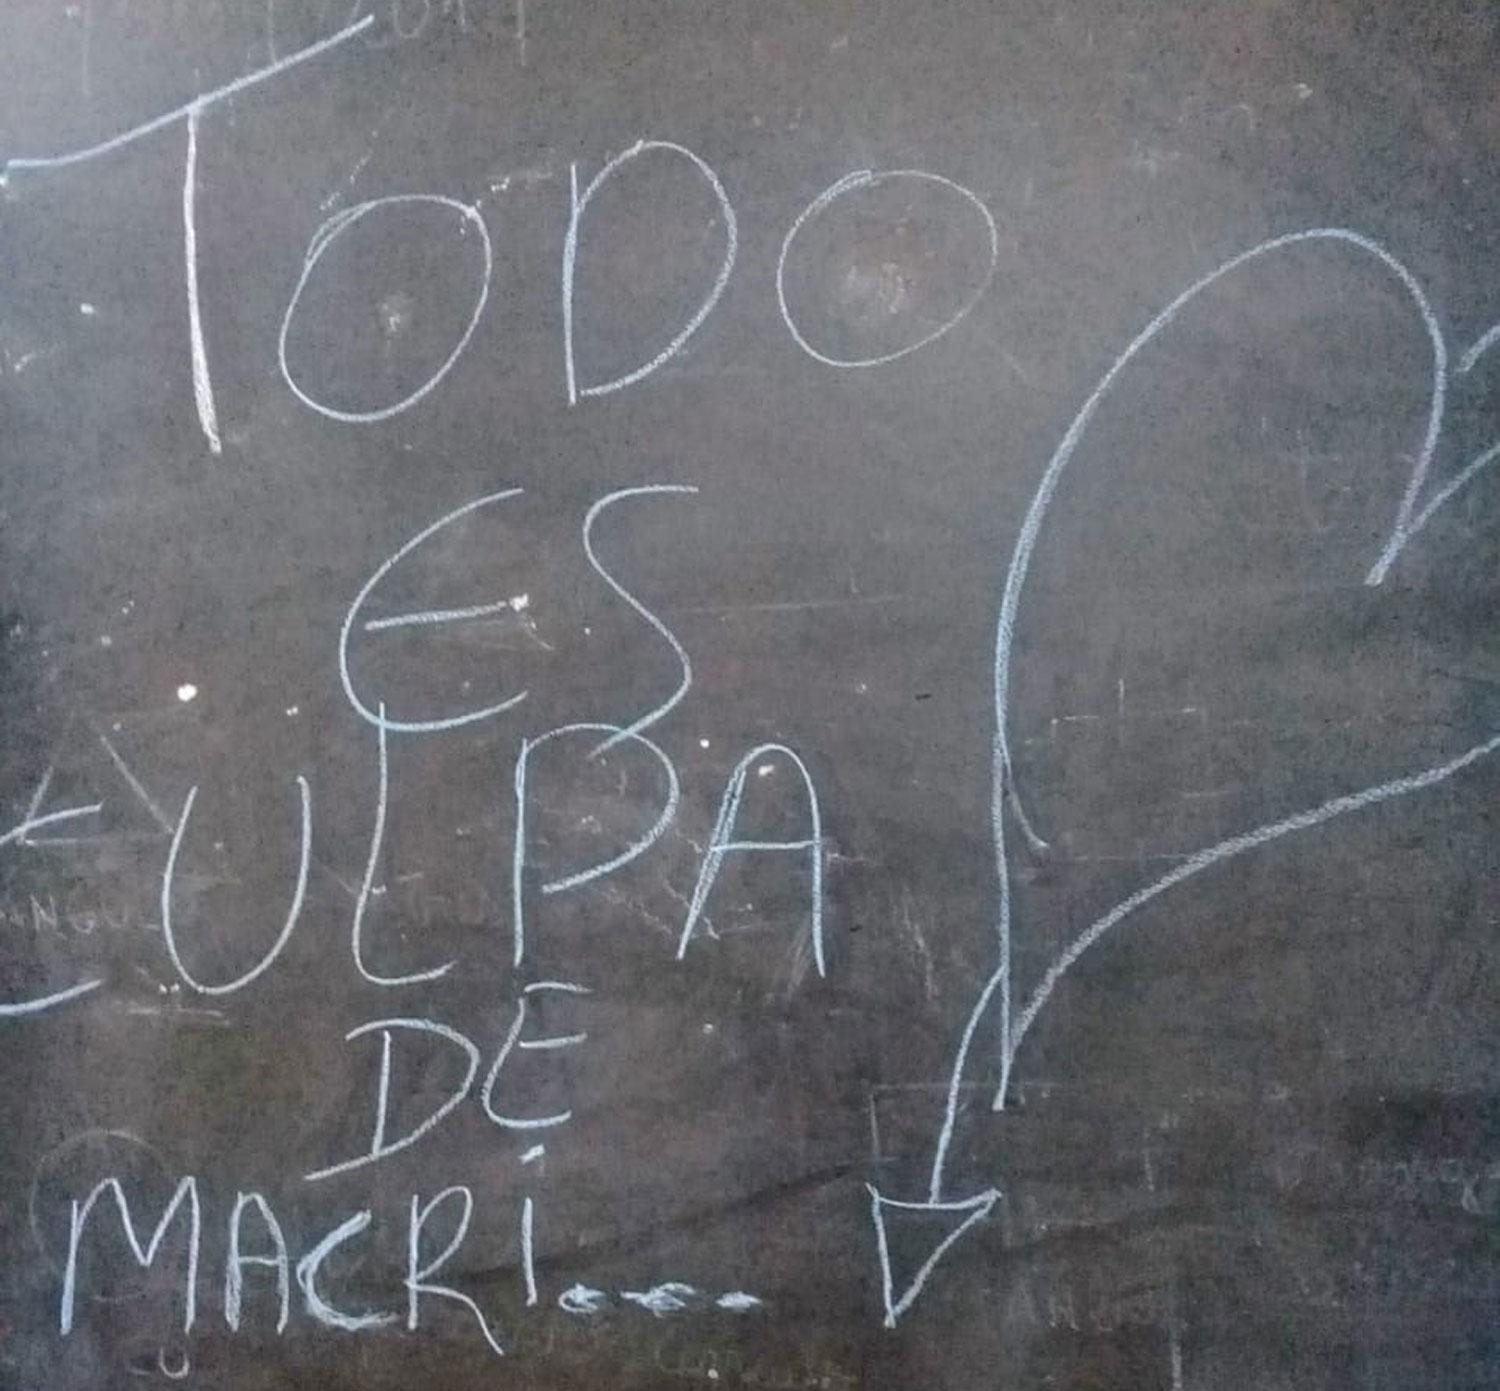 TODO
ES
CULPA
DE
MACRi....